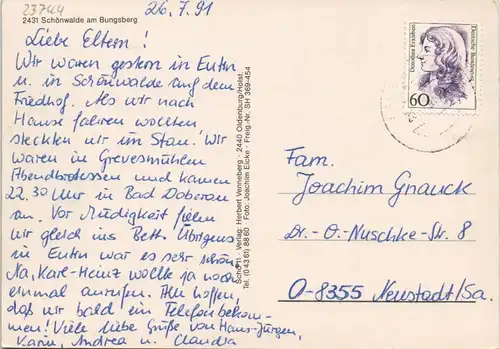 23744
2431 Schönwalde am Bungsberg
26.7.91
Liebe Eltern!
Wir waren gestern in Eutin
u. in Schönwalde auf dem
Friedhof. Als wir nach
Hause fahren wollten
steckten wir im Stau! Wir
waren in Grevesmühlen
Abendbrotessen und kamen
22.30 Uhr in Bad Doberan
an. Vor Müdigkeit fielen
wir gleich ins Bett. Übrigens
in Eutin war es sehr schön.
Na, Karl-Heinz wollte ja noch
einmal anrufen. Alle hoffen,
daß wir bald ein Telefon bekom-
men! Viele liebe Grüße von Hans-Jürgen,
Karin, Andrea u. Claudia
Verlag: Herbert Venneberg · 2440 Oldenburg/Holst.
Tel. (0 43 61) 88 60 · Foto: Joachim Eicke · Freig.-Nr. SH 369-454
Dorothea Erxleben
Deutsche Bundespost
60
Fam.
Joachim Gnauck
Dr.-O-Nuschke-Str. 8
O-8355 Neustadt/Sa.